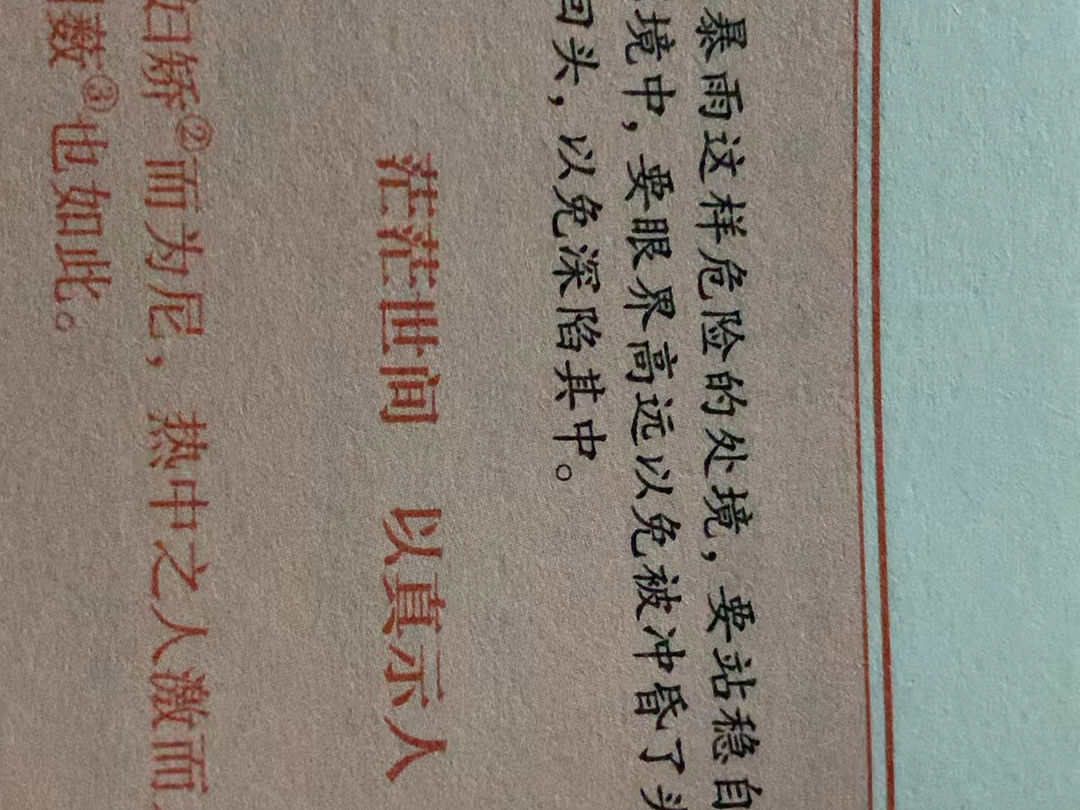 暴雨这样危险的处境，要站稳自
境中，要眼界高远以免被冲昏了头
回头，以免深陷其中。
茫茫世间 以真示人
妇矫②而为尼，热中之人激而
薮③也如此。